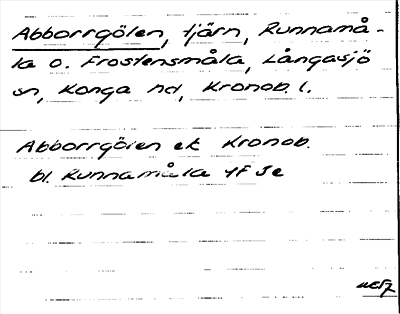 Abborrgölen, tjärn, Runnamå-
la o. Frostensmåla, Långasjö
sn, Konga hd, Kronob. l.
Abborrgölen ek Kronob.
bl. Runnamåla 4F Se